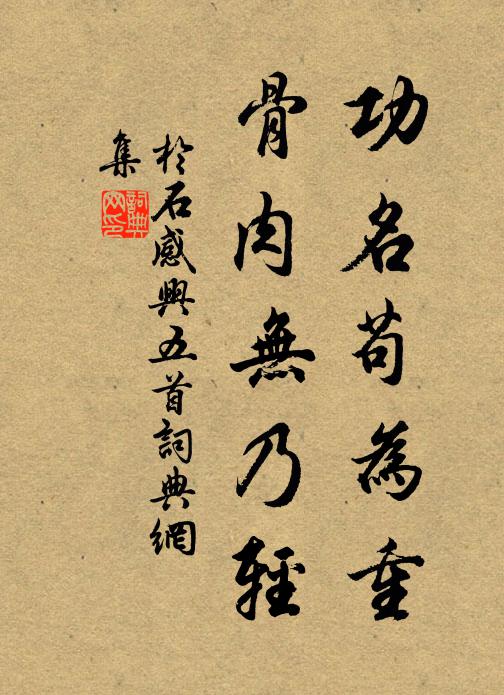 功名苟為重
骨肉無乃輕
於石感興五首詞典網
集
詞典網印